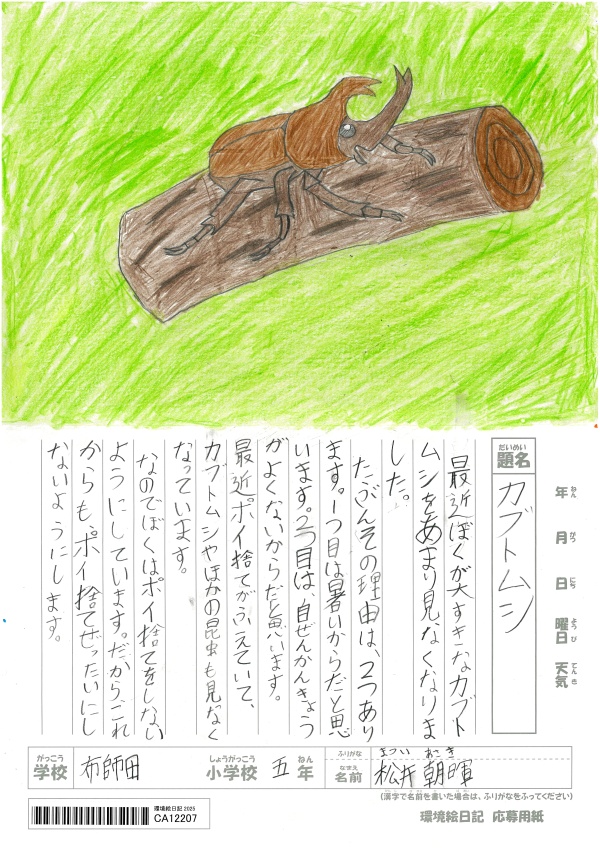 だいめい
題名
カブトムシ
年 ねん
月 がつ
日 にち
曜日 ようび
天気 てんき
最近ぼくが大すきなカブト
ムシをあまり見なくなりま
した。
たぶんその理由は、2つあり
ます。1つ目は暑いからだと思
います。2つ目は、自ぜんかんきょう
がよくないからだと思います。
最近ポイ捨てがふえていて、
カブトムシやほかの昆虫も見なく
なっています。
なのでぼくはポイ捨てをしない
ようにしています。だから、これ
からも、ポイ捨てぜったいにし
ないようにします。
がっこう
学校
布師田
しょうがっこう
小学校
五
ねん
年
ふりがな
まつい あさき
なまえ
名前
松井 朝暉
(漢字で名前を書いた場合は、ふりがなをふってください)
環境絵日記 2025
CA12207
環境絵日記 応募用紙